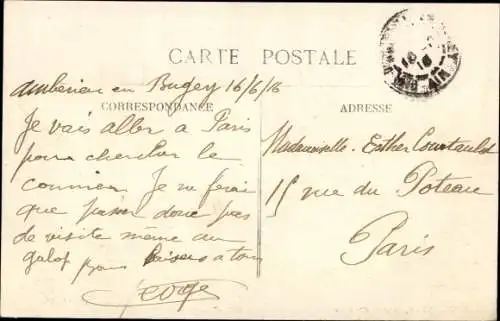 CARTE POSTALE
Ambérieu en Bugey 16/6/16
CORRESPONDANCE
Je vais aller à Paris
pour chercher le
courrier Je ne ferai
que passer donc pas
de visite même au
galop baisers à tous
ADRESSE
Mademoiselle Esther
15 rue du Poteau
Paris